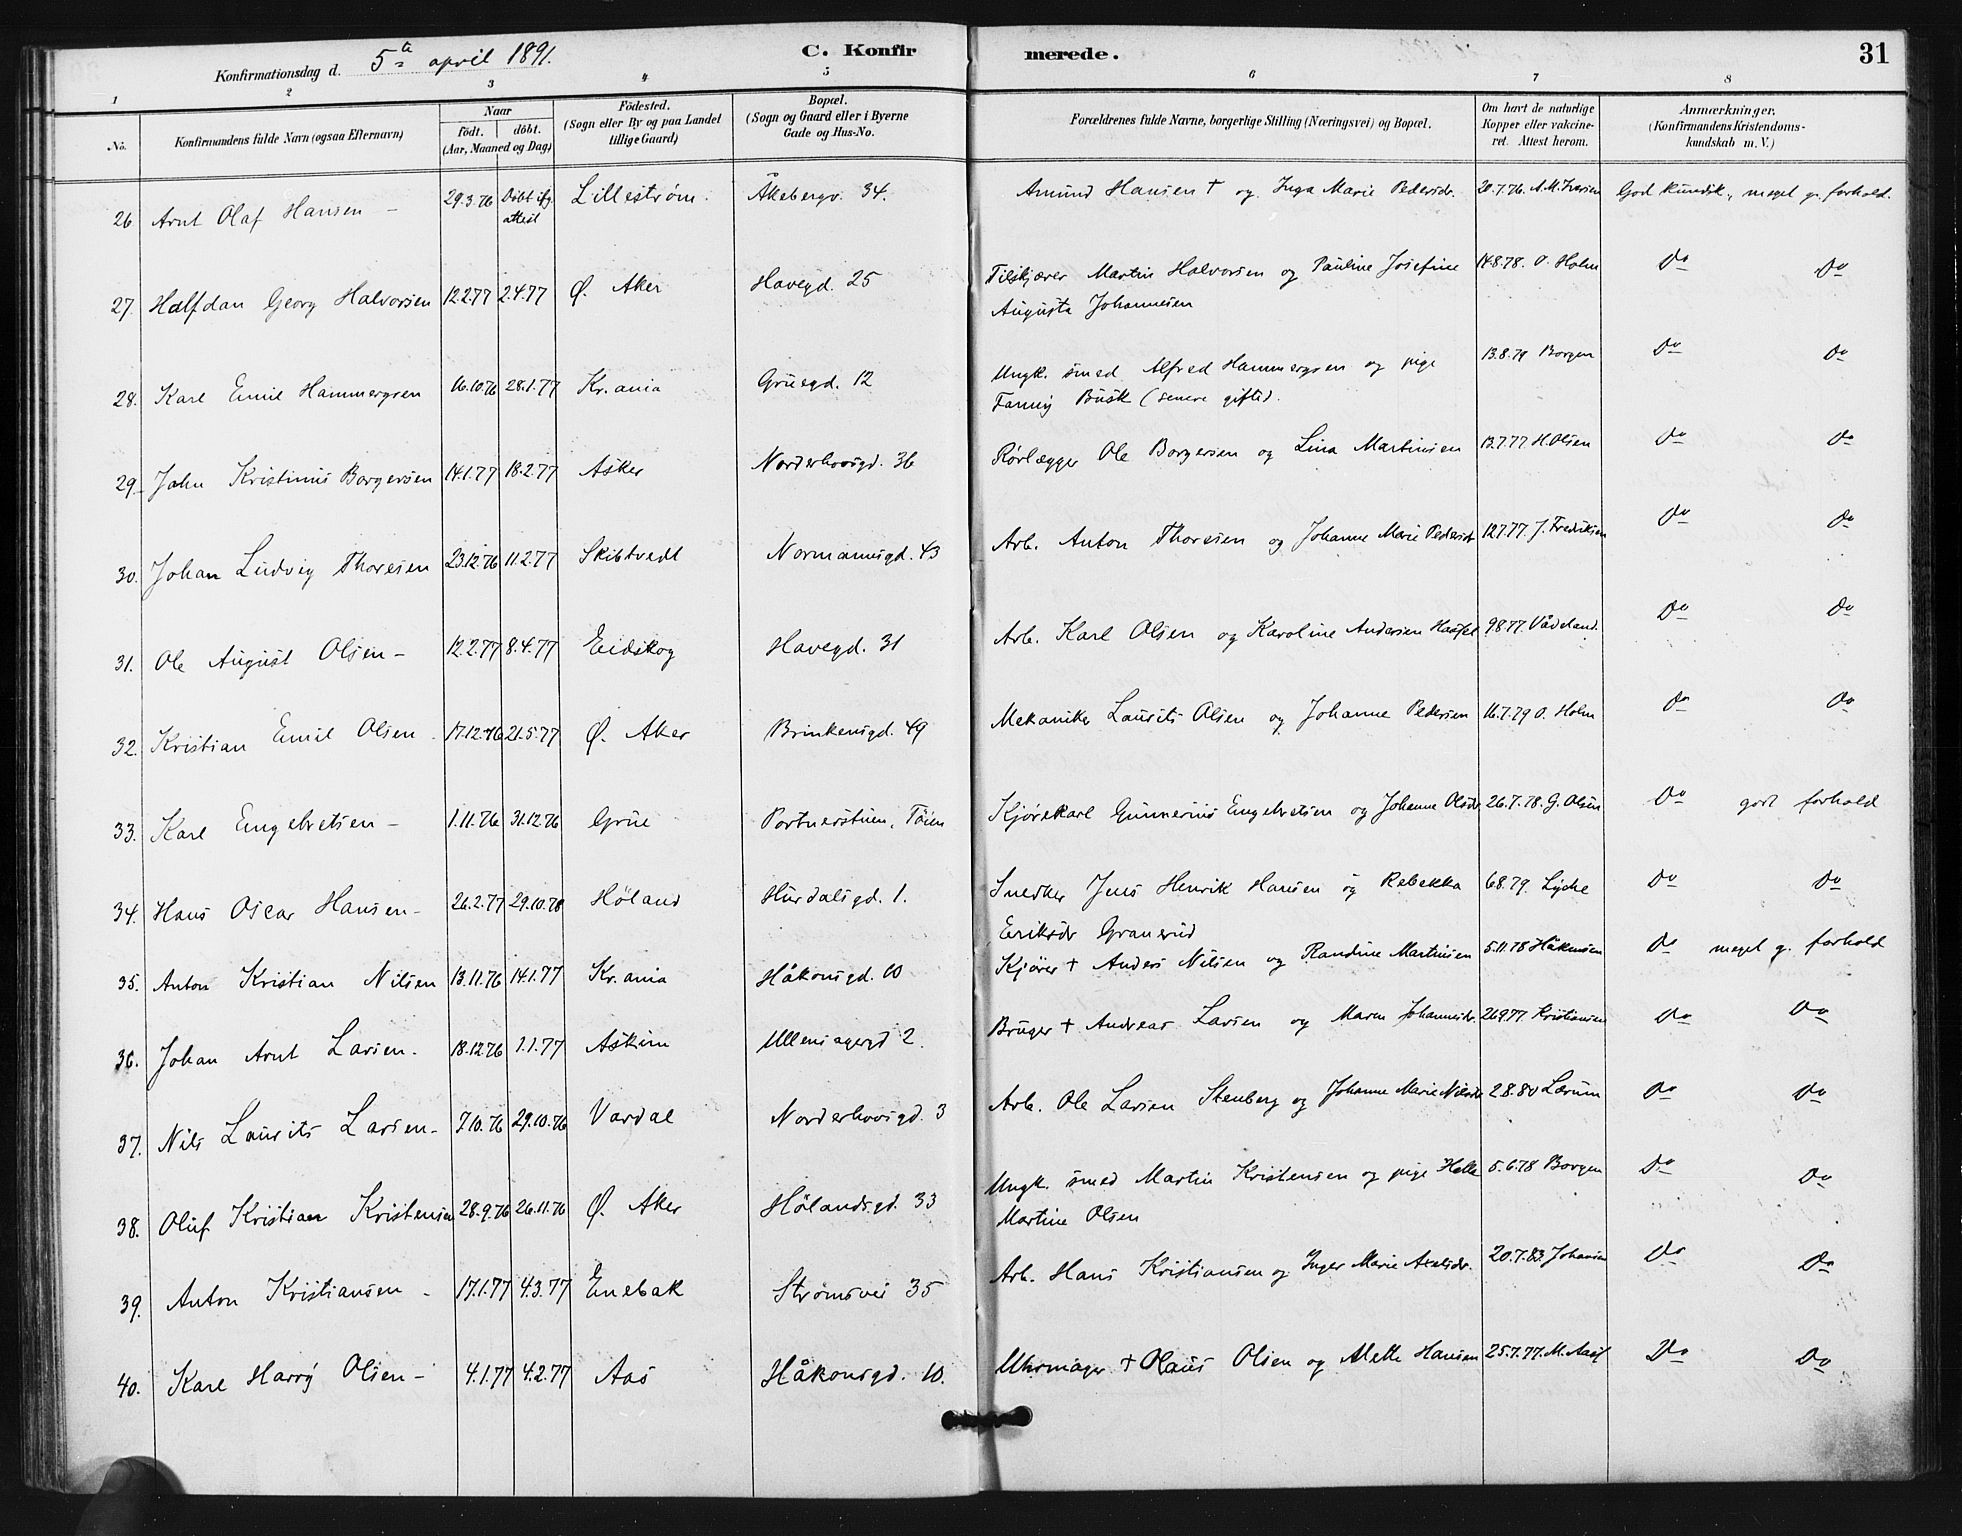 Konfirmationsdag d. 5te april 1891. C. Konfirmerede. 31
1 2 3 4 5 6 7 8
No. Konfirmandens fulde Navn (ogsaa Efternavn) Naar födt. döbt. (Aar, Maaned og Dag) Födested. (Sogn eller By og paa Landet tillige Gaard) Bopæl. (Sogn og Gaard eller i Byerne Gade og Hus-No. Forældrenes fulde Navne, borgerlige Stilling (Næringsvei) og Bopæl. Om havt de naturlige Kopper eller vakcineret. Attest herom. Anmærkninger. (Konfirmandens Kristendomskundskab m. V.)
26 Arnt Olaf Hansen – 29.3.76 Döbt ifg. attest Lillestrøm. Åkebergv. 34. Amund Hansen † og Inga Marie Pedersdr. 20.7.76. A.M. Iversen God kundsk., meget g. forhold.
27. Halfdan Georg Halvorsen 12.2.77 2.4.77 Ø. Aker Havegd. 25 Tilskjærer Martin Halvorsen og Pauline Josefine 14.8.78. O. Holm Do Do
Augusta Johannesen
28. Karl Emil Hammergren 16.10.76 28.1.77 Kr.ania Gruegd. 12 Ungk. smed Alfred Hammergren og pige 13.8.79 Borgen Do Do
Fanny Busk (senere gifte).
29. John Kristinius Borgersen 14.1.77 18.2.77 Asker Norderhovsgd. 36 Rørlægger Ole Borgersen og Lina Martinsen 13.7.77 H. Olsen Do Do
30. Johan Ludvig Thoresen 23.12.76 11.2.77 Skibtvedt Normannsgd. 43 Arb. Anton Thoresen og Johanne Marie Pedersdr 12.7.77. J. Fredriksen Do Do
31. Ole August Olsen – 12.2.77 8.4.77 Eidskog Havegd. 31 Arb. Karl Olsen og Karoline Andersen 9.8.77. Do Do
32. Kristian Emil Olsen – 17.12.76 21.5.77 Ø. Aker Brinkensgd. 49 Mekaniker Laurits Olsen og Johanne Pedersen 16.7.79 O. Holm Do Do
33. Karl Engebretsen – 1.11.76 31.12.76 Grue Portnerstuen, Töien Kjørekarl Gunnerius Engebretsen og Johanne Olsdr 26.7.78. G. Olsen Do godt forhold
34. Hans Oscar Hansen – 26.2.77 29.10.78 Höland Hurdalsgd. 1. Snedker Jens Henrik Hansen og Rebekka 6.8.79. Lyche Do Do
Eriksdr Granerud
35. Anton Kristian Nilsen 13.11.76 14.1.77 Kr.ania Håkonsgd. 10 Kjører † Anders Nilsen og Randine Martinsen 5.11.78 Håkensen Do meget g. forhold
36. Johan Arnt Larsen. 18.12.76 1.1.77 Askim Ullensagergd 2. Bruger † Andreas Larsen og Maren Johannesdr. 26.9.77. Kristiansen Do Do
37. Nils Laurits Larsen – 7.10.76 29.10.76 Vardal Norderhovsgd. 3 Arb. Ole Larsen Stenberg og Johanne Marie Nilsdr 2.8.80 Lærum Do Do
38. Oluf Kristian Kristensen 28.9.76 26.11.76 Ø. Aker Hölandsgd. 33 Ungk. smed Martin Kristensen og pige Helle 5.6.78 Borgen Do Do
Martine Olsen
39. Anton Kristiansen – 17.1.77 4.3.77 Enebak Strömsvei 35 Arb. Hans Kristiansen og Inger Marie Axelsdr. 20.7.83. Johansen Do Do
40. Karl Harry Olsen – 4.1.77 4.2.77 Aas Håkonsgd. 10. Uhrmager † Olaus Olsen og Mette Hansen 25.7.77. M. Do Do